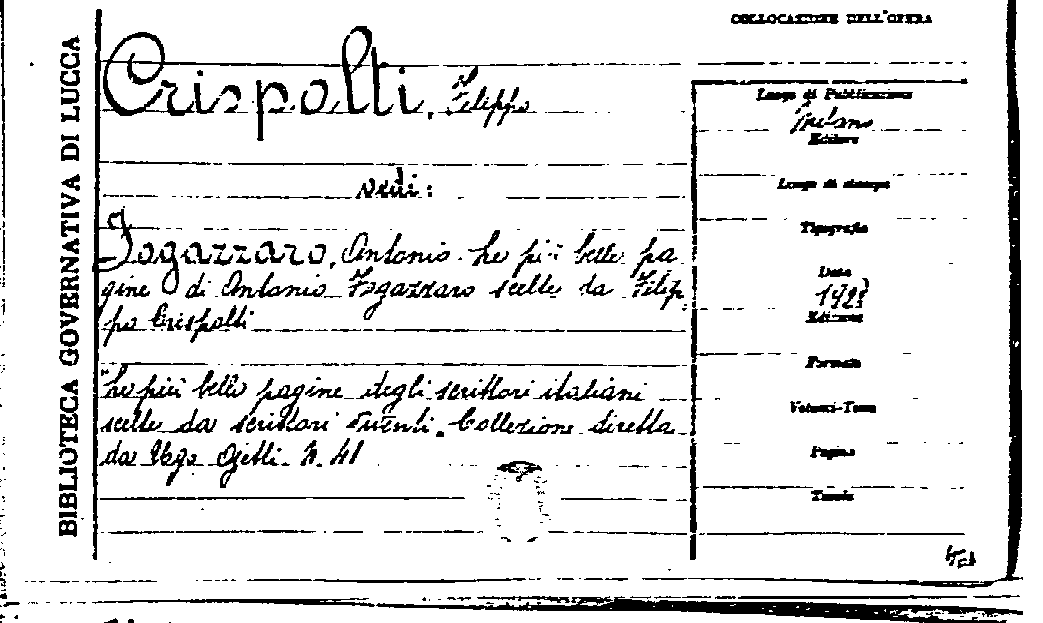 COLLOCAZIONE DELL'OPERA
BIBLIOTECA GOVERNATIVA DI LUCCA
Crispolti, Filippo
vedi:
Fogazzaro, Antonio - Le più belle pa
gine di Antonio Fogazzaro scelte da Filip
po Crispolti
"Le più belle pagine degli scrittori italiani
scelte da scrittori viventi". Collezione diretta
da Ugo Ojetti - N. 41
Luogo di Pubblicazione
Milano
Editore
Luogo di stampa
Tipografia
Data
Edizione
Formato
Volumi-Tomi
Pagine
Tavole